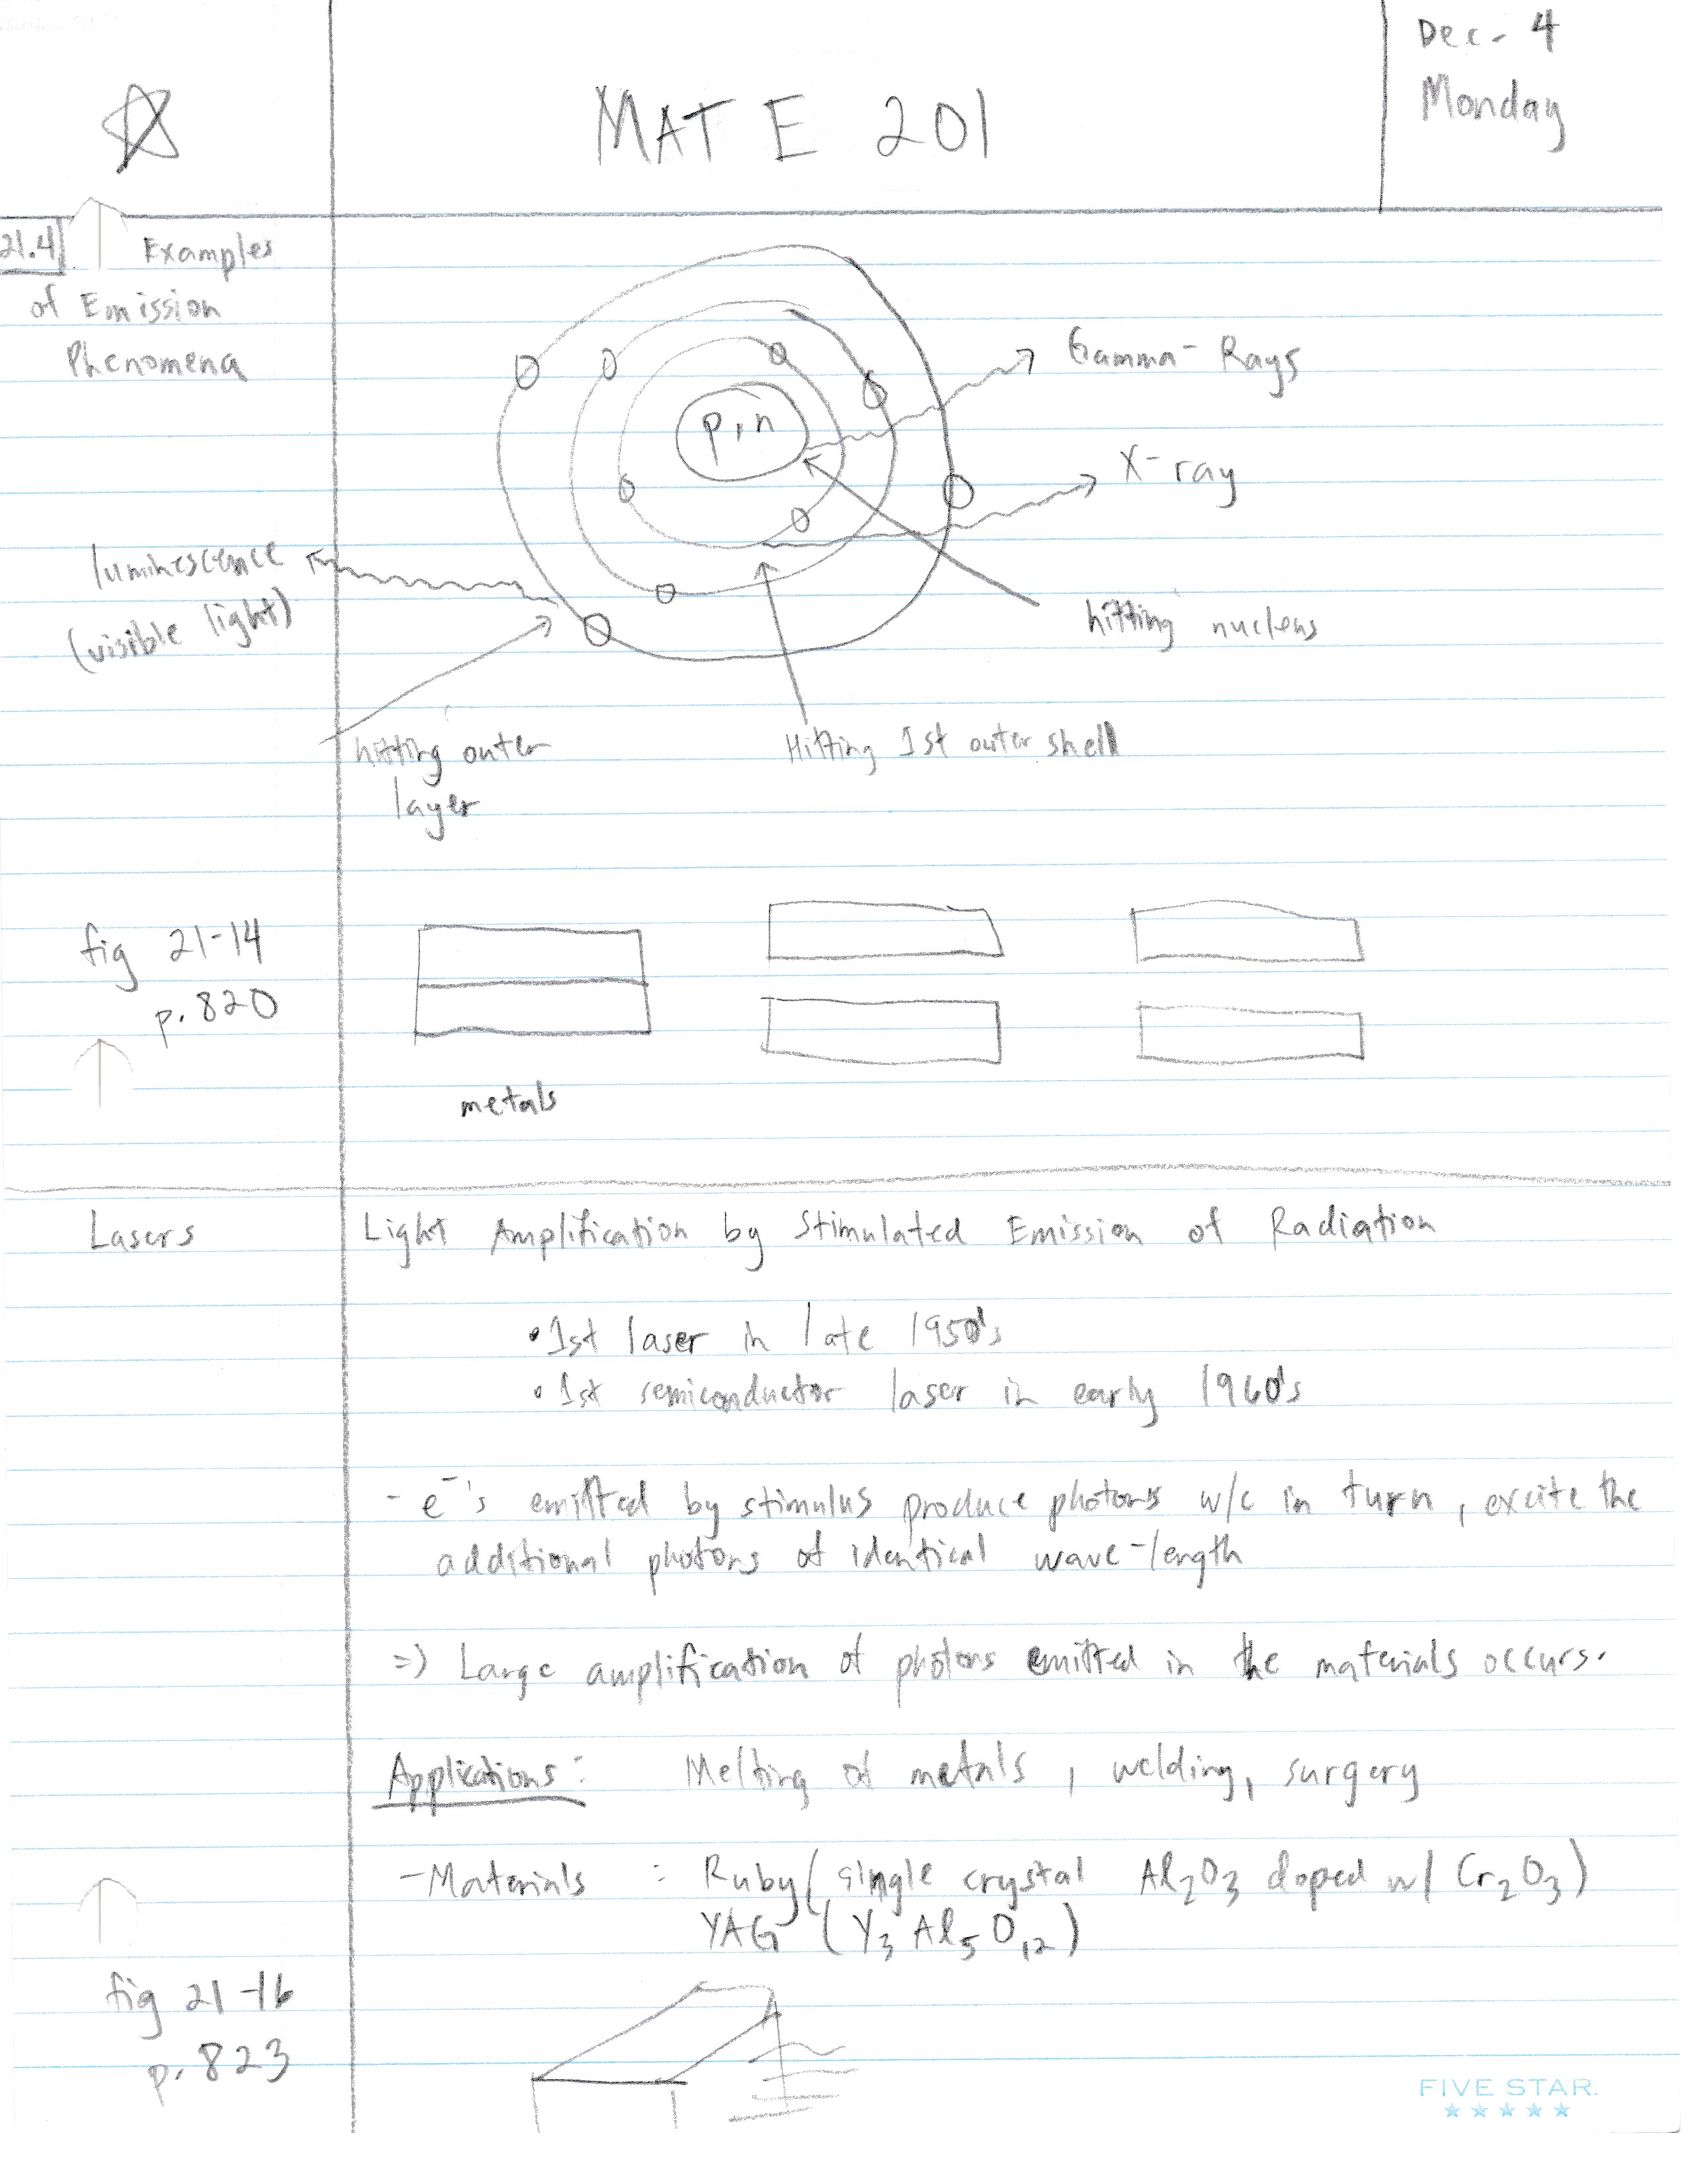 Dec. 4
Monday
MAT E 201
21.4 Examples
of Emission
Phenomena
p, n
Gamma-Rays
X-ray
luminescence
(visible light)
hitting nucleus
hitting outer
layer
Hitting 1st outer shell
fig 21-14
p. 820
metals
Lasers
Light Amplification by Stimulated Emission of Radiation
• 1st laser in late 1950's
• 1st semiconductor laser in early 1960's
- e⁻'s emitted by stimulus produce photons w/c in turn, excite the
additional photons of identical wave-length
=> Large amplification of photons emitted in the materials occurs.
Applications: Melting of metals, welding, surgery
- Materials : Ruby (single crystal Al₂O₃ doped w/ Cr₂O₃)
YAG (Y₃Al₅O₁₂)
fig 21-16
p. 823
FIVE STAR.